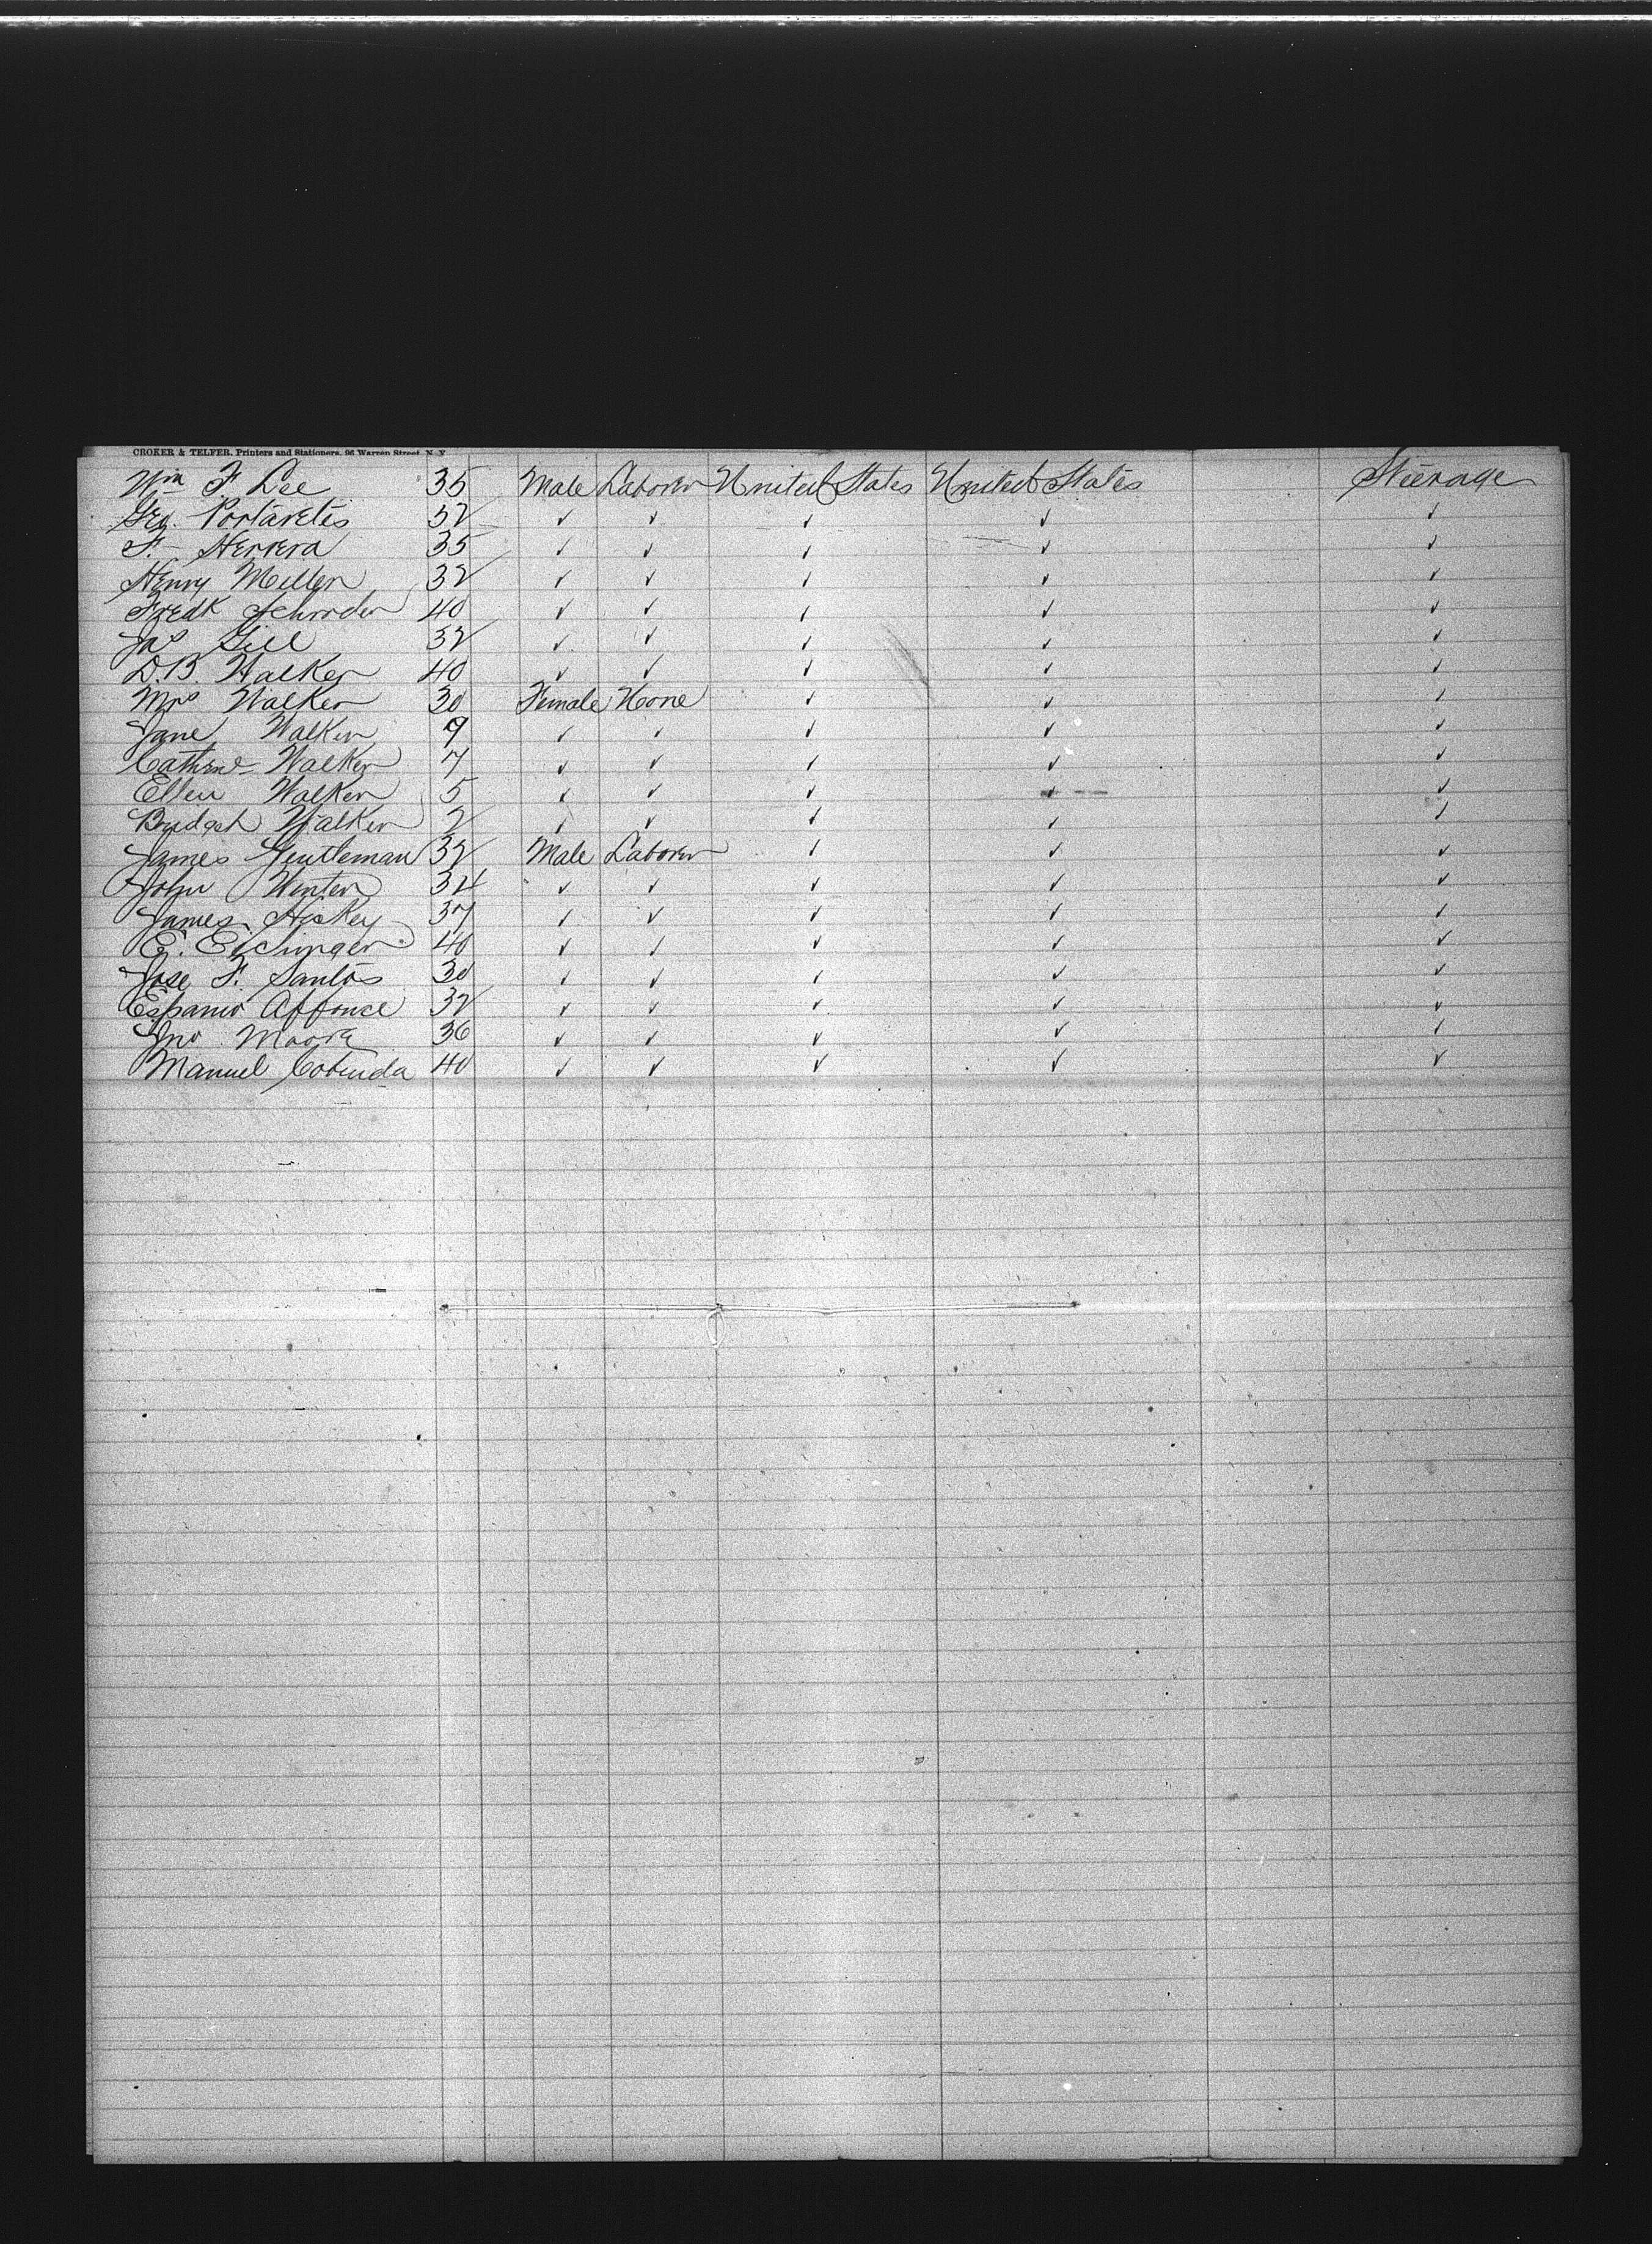 CROKER & TELFER, Printers and Stationers, 96 Warren Street, N. Y.
Wm F. Lee 35 Male Laborer United States United States Steerage
Geo. Portavetis 32 ✓ ✓ ✓ ✓ ✓
F. Herrera 35 ✓ ✓ ✓ ✓ ✓
Henry Miller 32 ✓ ✓ ✓ ✓ ✓
Fredk Schroder 40 ✓ ✓ ✓ ✓ ✓
Jas Gill 32 ✓ ✓ ✓ ✓ ✓
D.B. Walker 40 ✓ ✓ ✓ ✓ ✓
Mrs Walker 30 Female None ✓ ✓ ✓
Jane Walker 9 ✓ ✓ ✓ ✓ ✓
Cathrne Walker 7 ✓ ✓ ✓ ✓ ✓
Ellen Walker 5 ✓ ✓ ✓ ✓ ✓
Bridget Walker 2 ✓ ✓ ✓ ✓ ✓
James Gentleman 32 Male Laborer ✓ ✓ ✓
John Winter 34 ✓ ✓ ✓ ✓ ✓
James Hickey 37 ✓ ✓ ✓ ✓ ✓
E. 40 ✓ ✓ ✓ ✓ ✓
Jose F. Santos 30 ✓ ✓ ✓ ✓ ✓
Affonce 32 ✓ ✓ ✓ ✓ ✓
Jno. Moora 36 ✓ ✓ ✓ ✓ ✓
Manuel 40 ✓ ✓ ✓ ✓ ✓